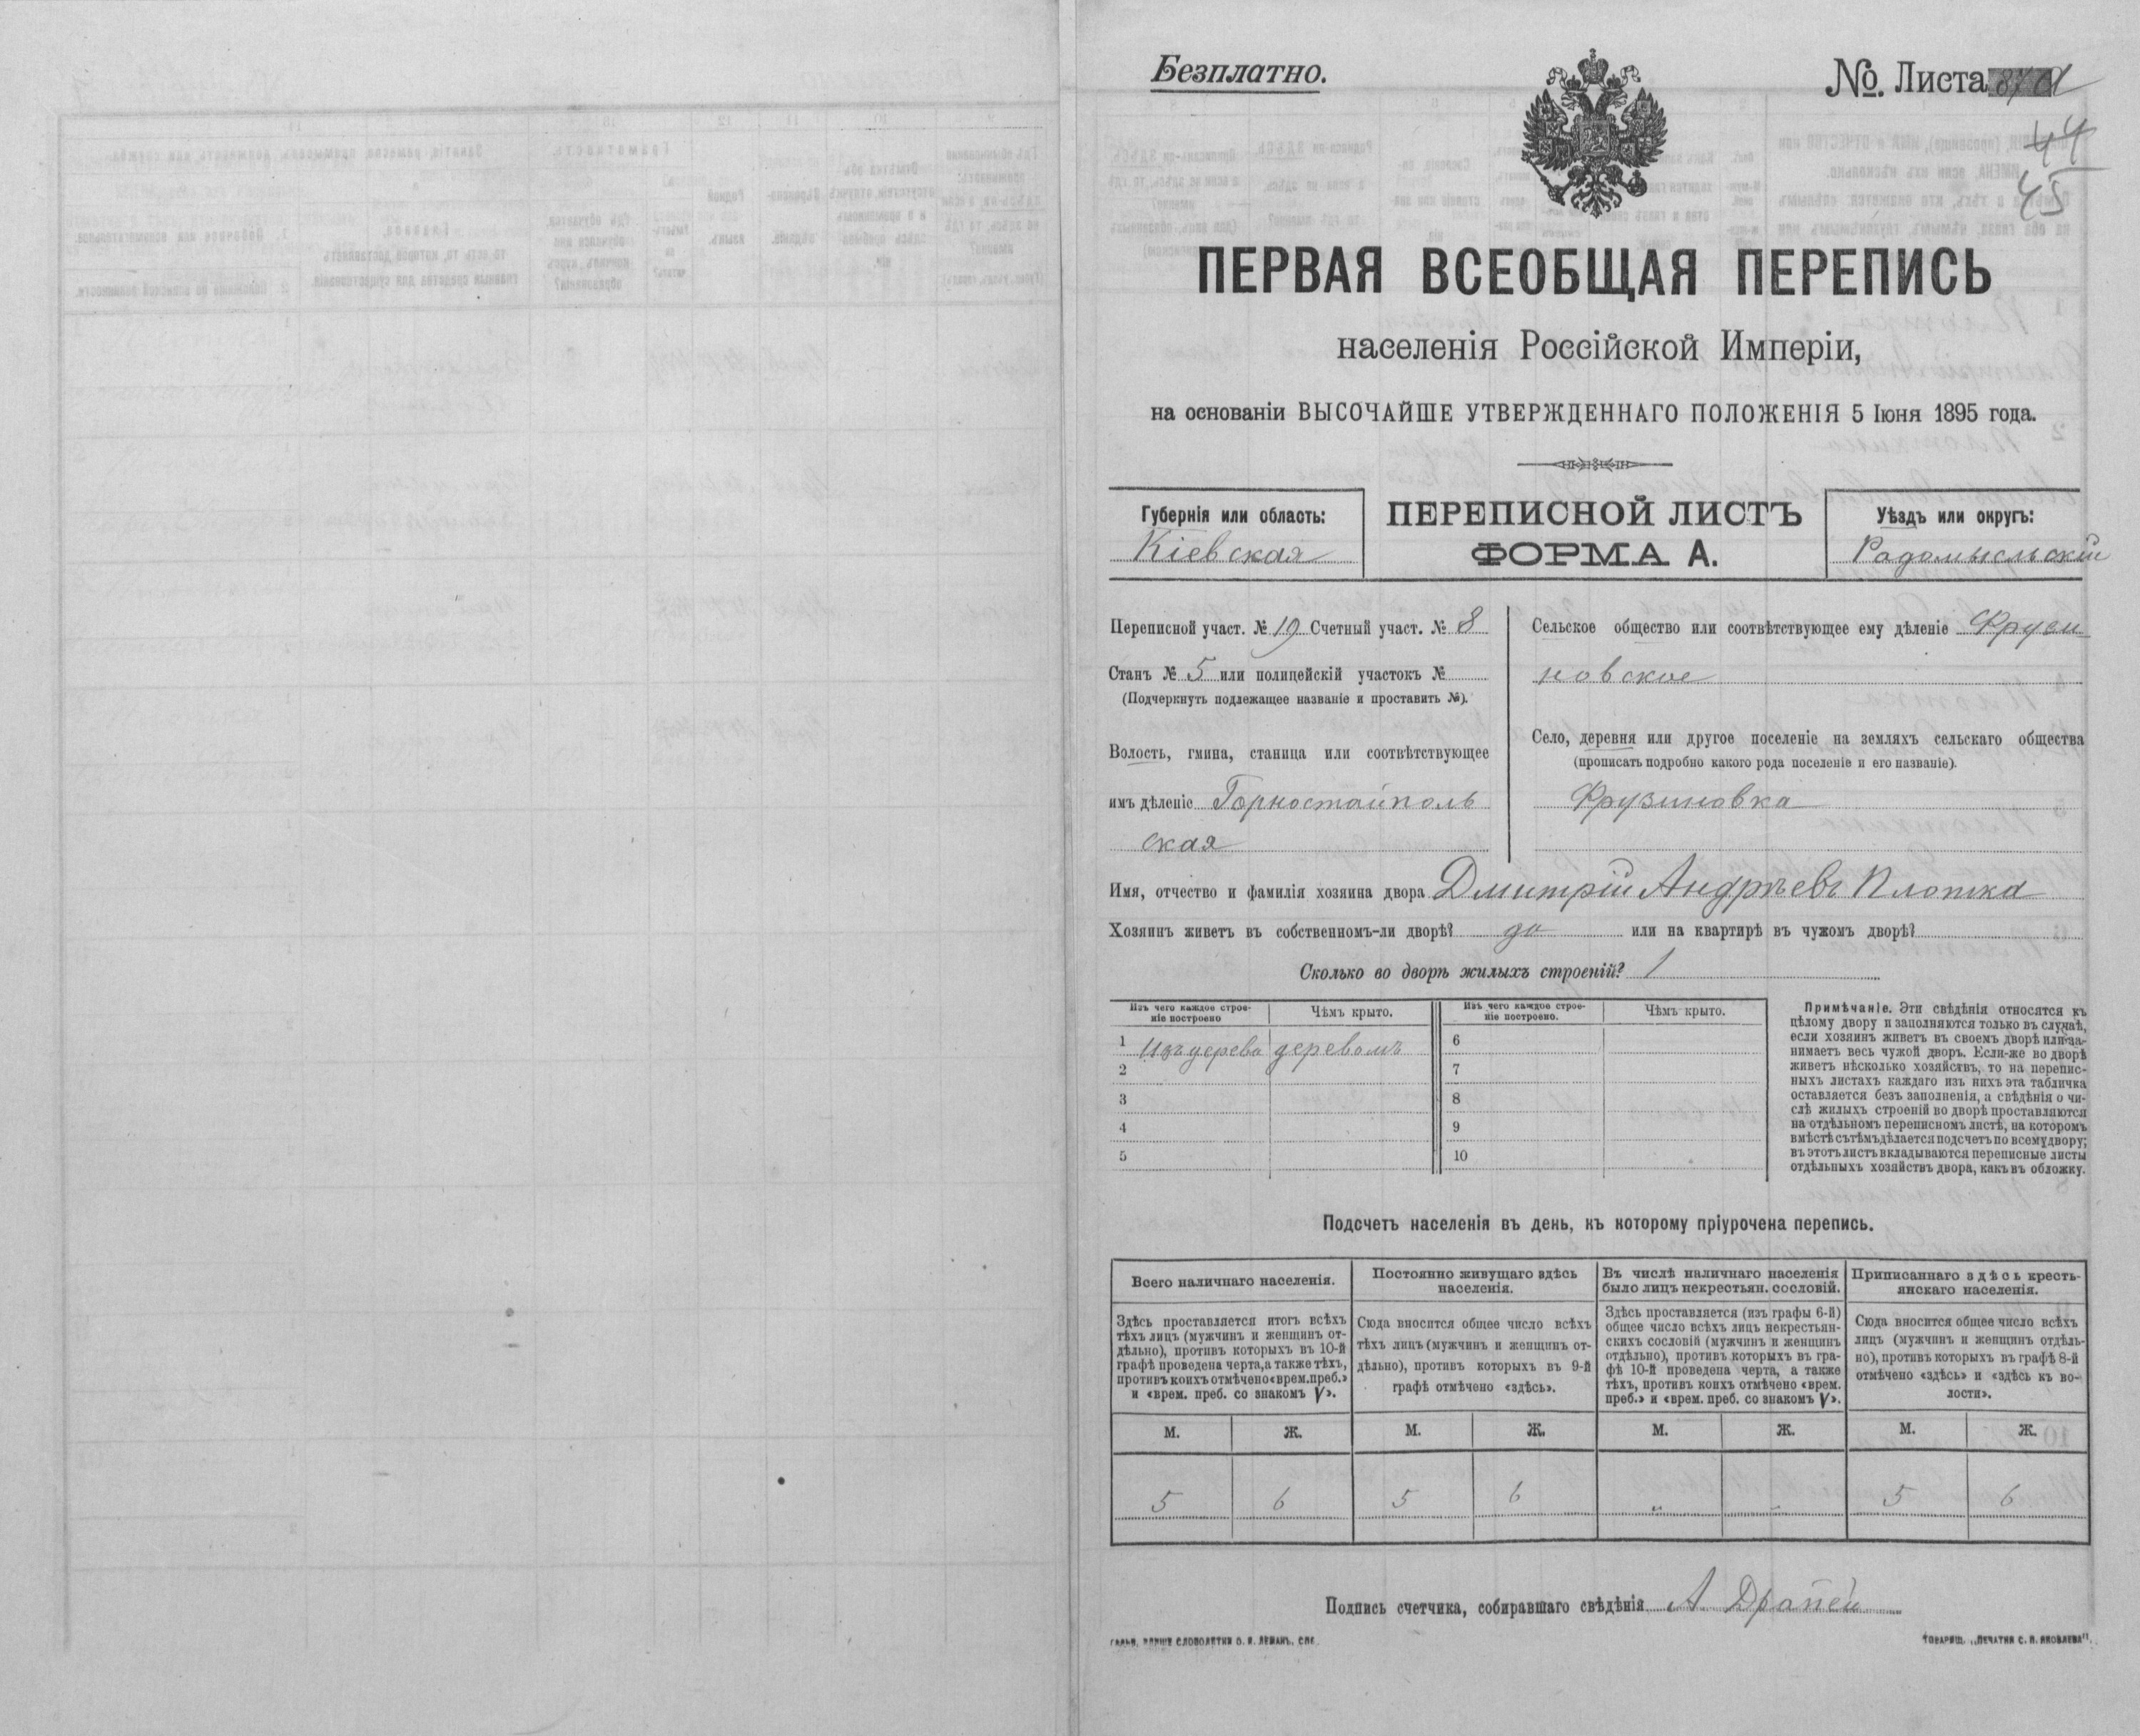 Безплатно.
№. Листа
44
45
ПЕРВАЯ ВСЕОБЩАЯ ПЕРЕПИСЬ
населенія Россійской Имперіи,
на основаніи ВЫСОЧАЙШЕ УТВЕРЖДЕННАГО ПОЛОЖЕНІЯ 5 Іюня 1895 года.
Губернія или область:
Кіевская
ПЕРЕПИСНОЙ ЛИСТЪ
ФОРМА А.
Уѣздъ или округъ:
Радомысльскій
Переписной участ. № 19 Счетный участ. № 8
Станъ № 5 или полицейскій участокъ №
(Подчеркнуть подлежащее названіе и проставить №).
Волость, гмина, станица или соотвѣтствующее
имъ дѣленіе Горностайполь
ская
Сельское общество или соотвѣтствующее ему дѣленіе Фруси-
новское
Село, деревня или другое поселеніе на земляхъ сельскаго общества
(прописать подробно какого рода поселеніе и его названіе).
Фрузиновка
Имя, отчество и фамилія хозяина двора Дмитрій Андрѣевъ Плотка
Хозяинъ живетъ въ собственномъ-ли дворѣ? да или на квартирѣ въ чужомъ дворѣ?
Сколько во дворѣ жилыхъ строеній? 1
Изъ чего каждое строе-
ніе построено
Чѣмъ крыто.
Изъ чего каждое строе-
ніе построено.
Чѣмъ крыто.
1 Изъ дерева деревомъ
2
3
4
5
6
7
8
9
10
Примѣчаніе. Эти свѣдѣнія относятся къ
цѣлому двору и заполняются только въ случаѣ,
если хозяинъ живетъ въ своемъ дворѣ или за-
нимаетъ весь чужой дворъ. Если-же во дворѣ
живетъ нѣсколько хозяйствъ, то на перепис-
ныхъ листахъ каждаго изъ нихъ эта табличка
оставляется безъ заполненія, а свѣдѣнія о чи-
слѣ жилыхъ строеній во дворѣ проставляются
на отдѣльномъ переписномъ листѣ, на которомъ
вмѣстѣ съ тѣмъ дѣлается подсчетъ по всему двору;
въ этотъ листъ вкладываются переписные листы
отдѣльныхъ хозяйствъ двора, какъ въ обложку.
Подсчетъ населенія въ день, къ которому пріурочена перепись.
Всего наличнаго населенія.
Постоянно живущаго здѣсь
населенія.
Въ числѣ наличнаго населенія
было лицъ некрестьян. сословій.
Приписаннаго здѣсь кресть-
янскаго населенія.
Здѣсь проставляется итогъ всѣхъ
тѣхъ лицъ (мужчинъ и женщинъ от-
дѣльно), противъ которыхъ въ 10-й
графѣ проведена черта, а также тѣхъ,
противъ коихъ отмѣчено «врем. преб.»
и «врем. преб. со знакомъ V».
Сюда вносится общее число всѣхъ
тѣхъ лицъ (мужчинъ и женщинъ от-
дѣльно), противъ которыхъ въ 9-й
графѣ отмѣчено «здѣсь».
Здѣсь проставляется (изъ графы 6-й)
общее число всѣхъ лицъ некрестьян-
скихъ сословій (мужчинъ и женщинъ
отдѣльно), противъ которыхъ въ гра-
фѣ 10-й проведена черта, а также
тѣхъ, противъ коихъ отмѣчено «врем.
преб.» и «врем. преб. со знакомъ V».
Сюда вносится общее число всѣхъ
лицъ (мужчинъ и женщинъ отдѣль-
но), противъ которыхъ въ графѣ 8-й
отмѣчено «здѣсь» и «здѣсь къ во-
лости».
М. Ж. М. Ж. М. Ж. М. Ж.
5 6 5 6 " " 5 6
Подпись счетчика, собиравшаго свѣдѣнія А Драпей
СЛОВОЛИТНИ О. И. ЛЕМАНЪ, СПБ.
ТОВАРИЩ. „ПЕЧАТНЯ С. П. ЯКОВЛЕВА".